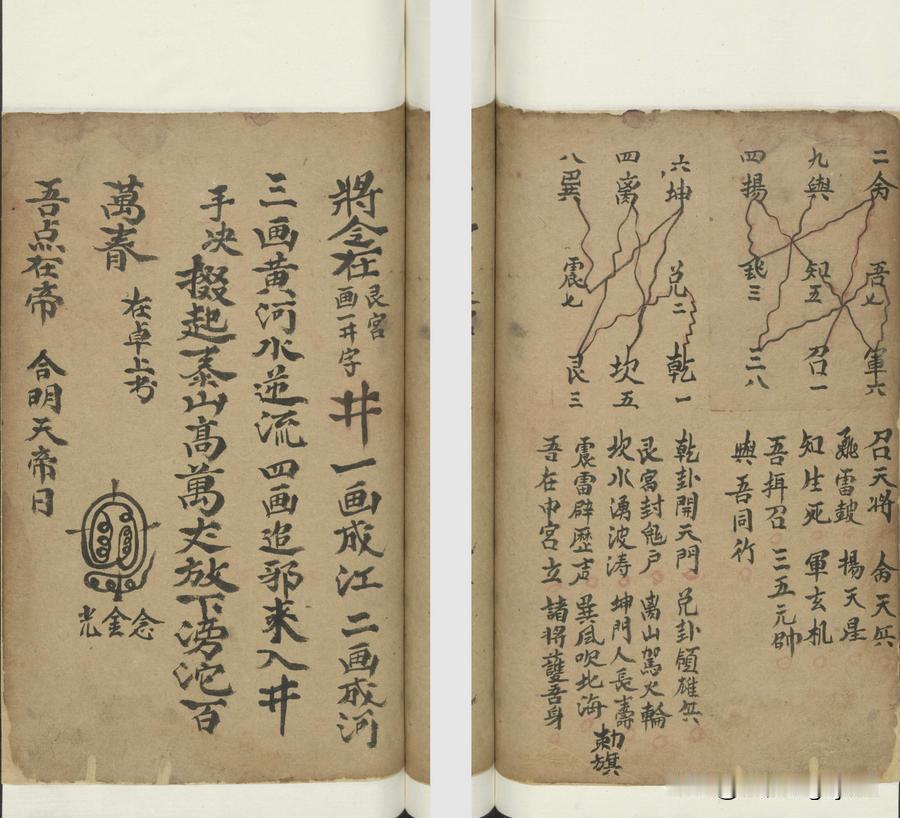 二兵 九與 四揚
吾七 知五 三
軍六 召一 二八
六坤 四离 八巽
兑二 震七
乾一 坎五 艮三
召天將 兵天兵
雷鼓 揚天星
知生死 軍玄机
吾揖召 三五元帥
與吾同行
乾卦開天門 兑卦領雄兵
艮宫封鬼户 离山駕火輪
坎水湧波涛 坤門人長壽
震雷辟歷声 巽風吹北海
吾在中宫立 諸將護吾身
勅旗
將令在艮宫画一井字 井 一画成江 二画成河
三画黄河水逆流 四画追邪来入井
手决 掇起泰山髙萬丈放下滂沱百
萬春 在卓上书
念金光
吾点在帝 合明天帝日